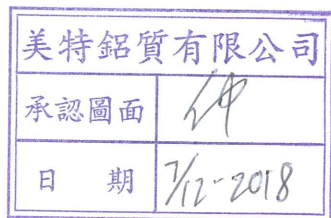 美特鋁質有限公司
承認圖面 仲
日期 7/12-2018